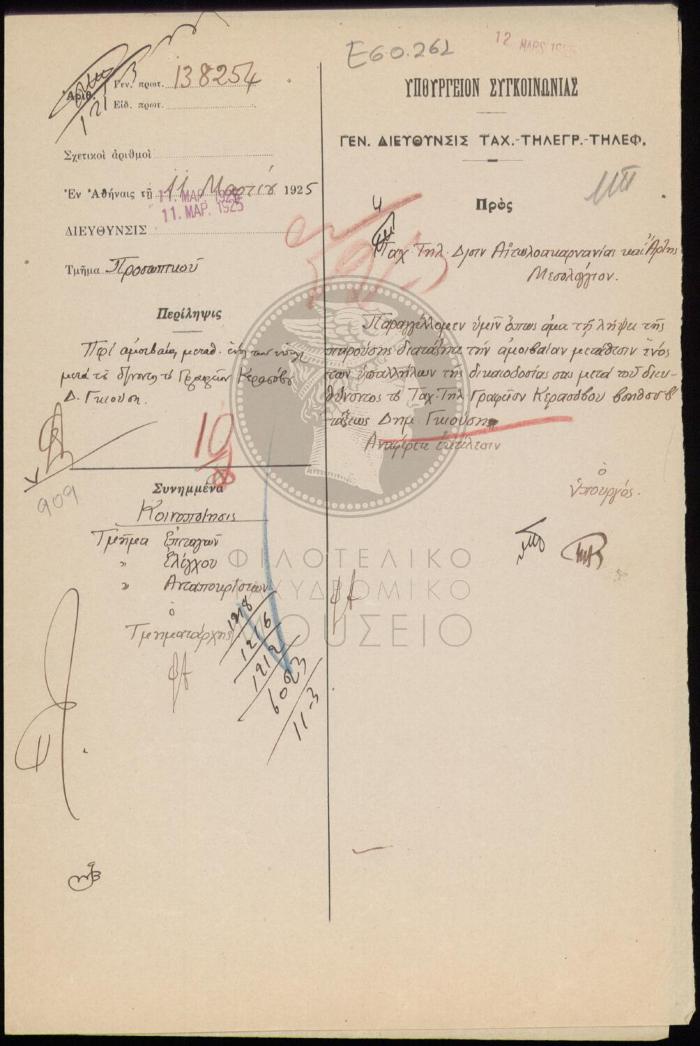 Ε60.262
12 MARS 1925
Ἀριθ. Γεν. πρωτ. 138254
Εἰδ. πρωτ.
12/3
Σχετικοὶ ἀριθμοὶ
Ἐν Ἀθήναις τῇ 11 Μαρτίου 1925
11. ΜΑΡ. 1925
11. ΜΑΡ. 1925
ΔΙΕΥΘΥΝΣΙΣ
Τμῆμα Προσωπικοῦ
Περίληψις
Περὶ ἀμοιβαίας μεταθ.
μετὰ τοῦ δ/ντος τὸ Γραφεῖον Κερασόβου
Δ. Γκιούση.
10
909
Συνημμένα
Κοινοποίησις
Τμῆμα Ἐπιταγῶν
» Ἐλέγχου
» Ἀνταποκρίσεων
ὁ
Τμηματάρχης
1218
1216
1212
6023
11-3
ΥΠΟΥΡΓΕΙΟΝ ΣΥΓΚΟΙΝΩΝΙΑΣ
ΓΕΝ. ΔΙΕΥΘΥΝΣΙΣ ΤΑΧ.-ΤΗΛΕΓΡ.-ΤΗΛΕΦ.
Πρὸς
Ταχ. Τηλ. Δ/σιν Αἰτωλοακαρνανίας καὶ Ἄρτης
Μεσολόγγιον.
Παραγγέλλομεν ὑμῖν ὅπως ἅμα τῇ λήψει τῆς
παρούσης διατάξητε τὴν ἀμοιβαίαν μετάθεσιν ἑνὸς
τῶν ὑπαλλήλων τῆς δικαιοδοσίας σας μετὰ τοῦ διευ-
θύνοντος τὸ Ταχ. Τηλ. Γραφεῖον Κερασόβου βοηθοῦ Β
τάξεως Δημ. Γκιούση
Ἀναφέρατε ἐκτέλεσιν
ὁ
Ὑπουργός.
ΦΙΛΟΤΕΛΙΚΟ
ΤΑΧΥΔΡΟΜΙΚΟ
ΜΟΥΣΕΙΟ